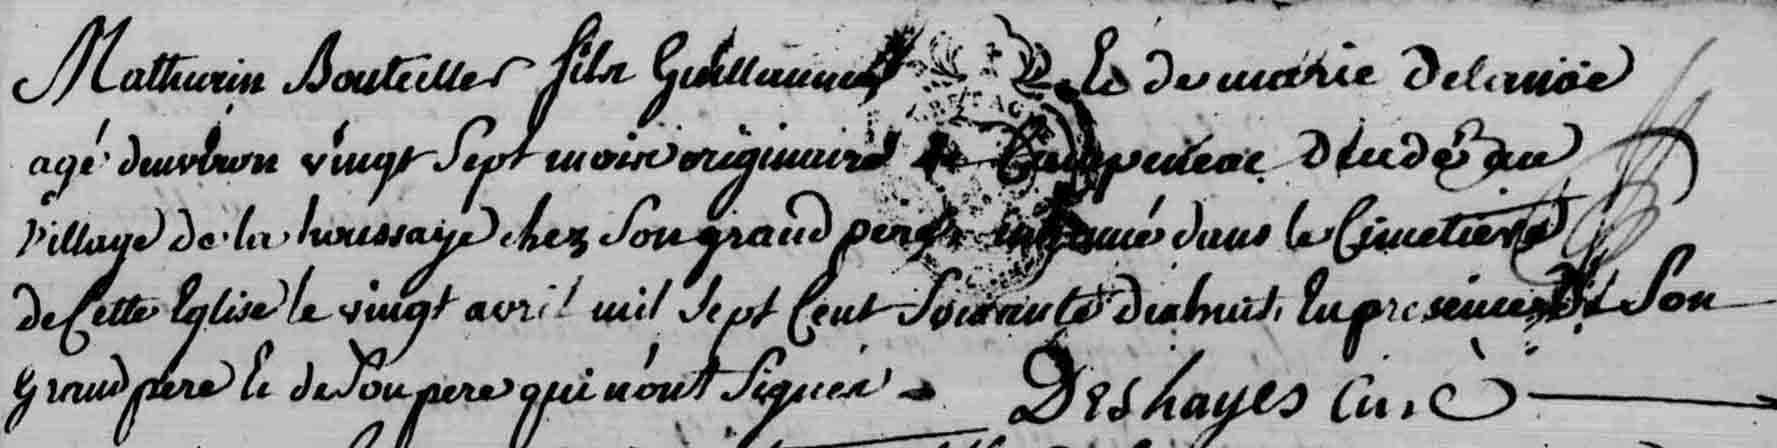 Mathurin Bouteiller fils Guillaume Et de marie Delanöe
agé denviron vingt Sept mois originaire de Campeneac décédé au
village de la houssaye chez Son grand pere inhumé dans le Cimetiere
de Cette Eglise le vingt avril mil Sept Cent Soixante dixhuit En presence de Son
Grand pere Et de Son pere qui n'ont Signés
Deshayes Curé